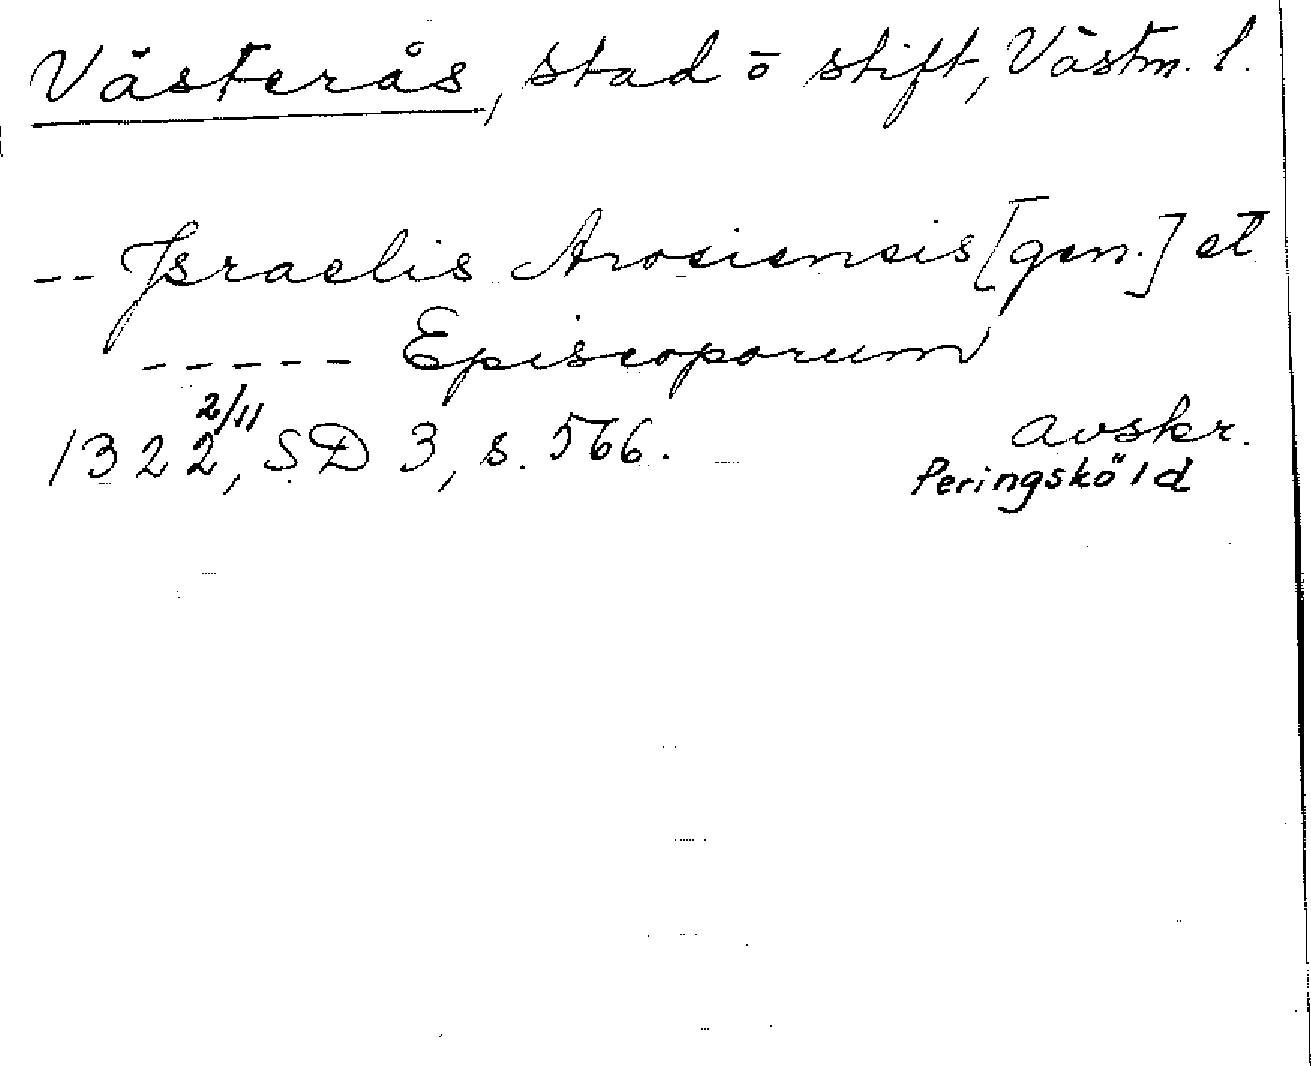 Västerås, stad o stift, Västm. l.
-- Israelis Arosiensis [gen.] et
----- Episcoporum
2/11
1322, SD 3, s. 566. avskr.
Peringsköld